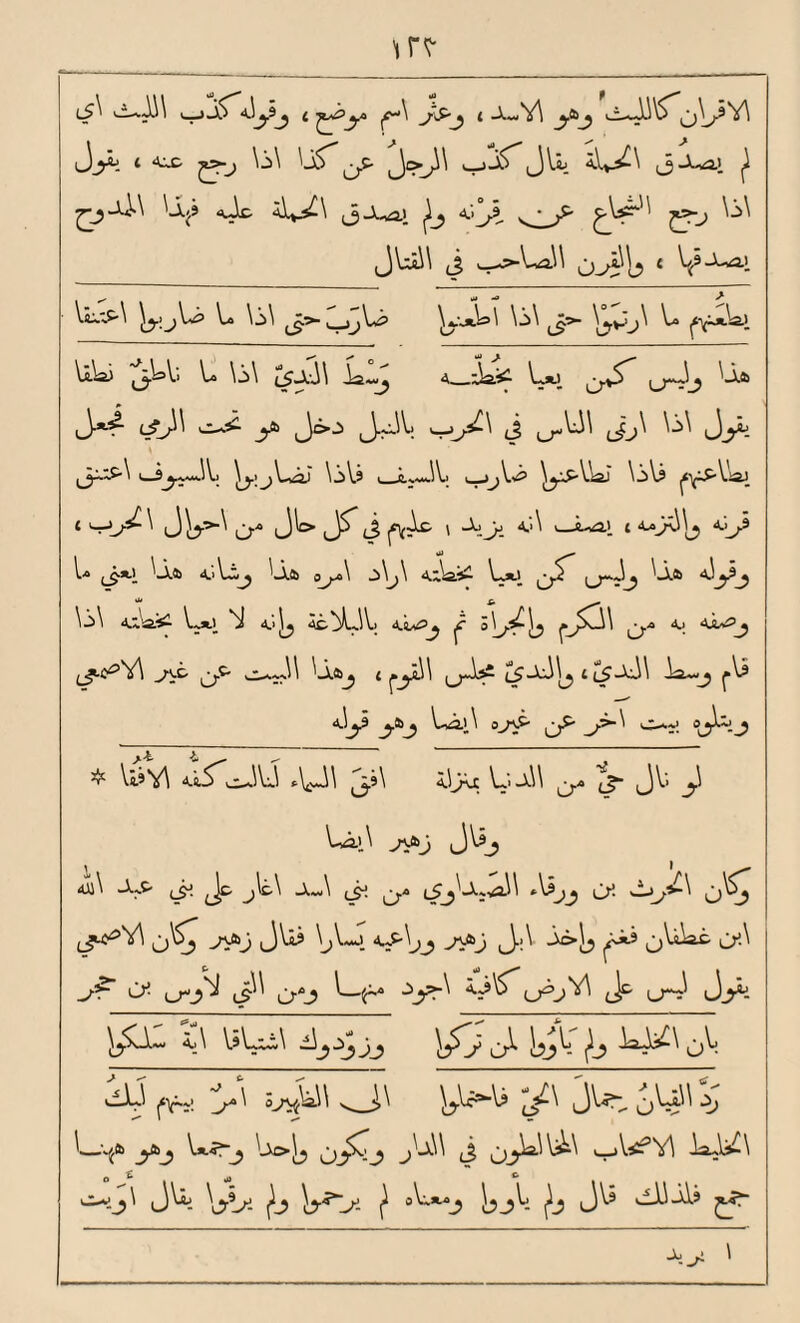 ١٢٣
الاقران كالليث وهو الاسد ، وعثر اسم موضع ، وقوله كذب الليث اي
لم يصدق الحملة يقال كذب الرجل عن كذا اذا رجع عنه ، يقول
اذا رجع الشجاع عن قرنه ولم يصدق الحملة عليه فهذا الممدوح
يصدقها ، والقرن الصاحب في القتال
يطعنهم ما ارتموا حتى اذا أطعنوا ضارب حتى اذا ما ضاربوا اعتنقا
هذا وليس كمن يعيا بخطته وسط الندي اذا ما ناطق نطقا
يقول اذا ارتمى الناس في الحرب بالنبل دخل هو تحت الرمي فجعل
يطاعنهم فاذا تطاعنوا ضارب بالسيف فاذا تضاربوا بالسيوف اعتنق
قرنه والتزمه ، يصف انه يزيد ١ عليهم في كل حال من احوال الحرب ،
وقوله هذا وليس كمن يعيا بخطته اراد امره هذا وشانه هذا يعني ما
وصفه به من الكرم والجراة ثم وصفه بالبلاغة وانه لا يعيا بخطته اذا
قام وسط الندي ، والندي مجلس القوم ، وهذا البيت عن غير الاصمعي
ويتلوه بيت اخر عن غيره ايضا وهو قوله
لو نال حي من الدنيا بمنزلة افق السماء لنالت كفه الافقا *
وقال زهير ايضا
وكان الحرث بن ورقاء الصيداوي من بني اسد اغار على بني عبد الله
ابن غطفان فغنم واخذ ابل زهير وراعيه يسارا فقال زهير وكان الاصمعي
يقول ليس على الارض كافية اجود منها ومن التي لأوس بن حجر
بان الخليط ولم يأووا لمن تركوا وزودوك اشتياقا اية سلكوا
رد القيان جمال الحي فاحتملوا الى الظهيرة امر بينهم لبك
الخليط الاصحاب المخالطون في الدار ويكون واحدا وجمعا وهو هاهنا
جمع فلذلك قال ولم ياووا ومعناه لم يرحموا ولم يرقوا يقال أويت
١ يريد